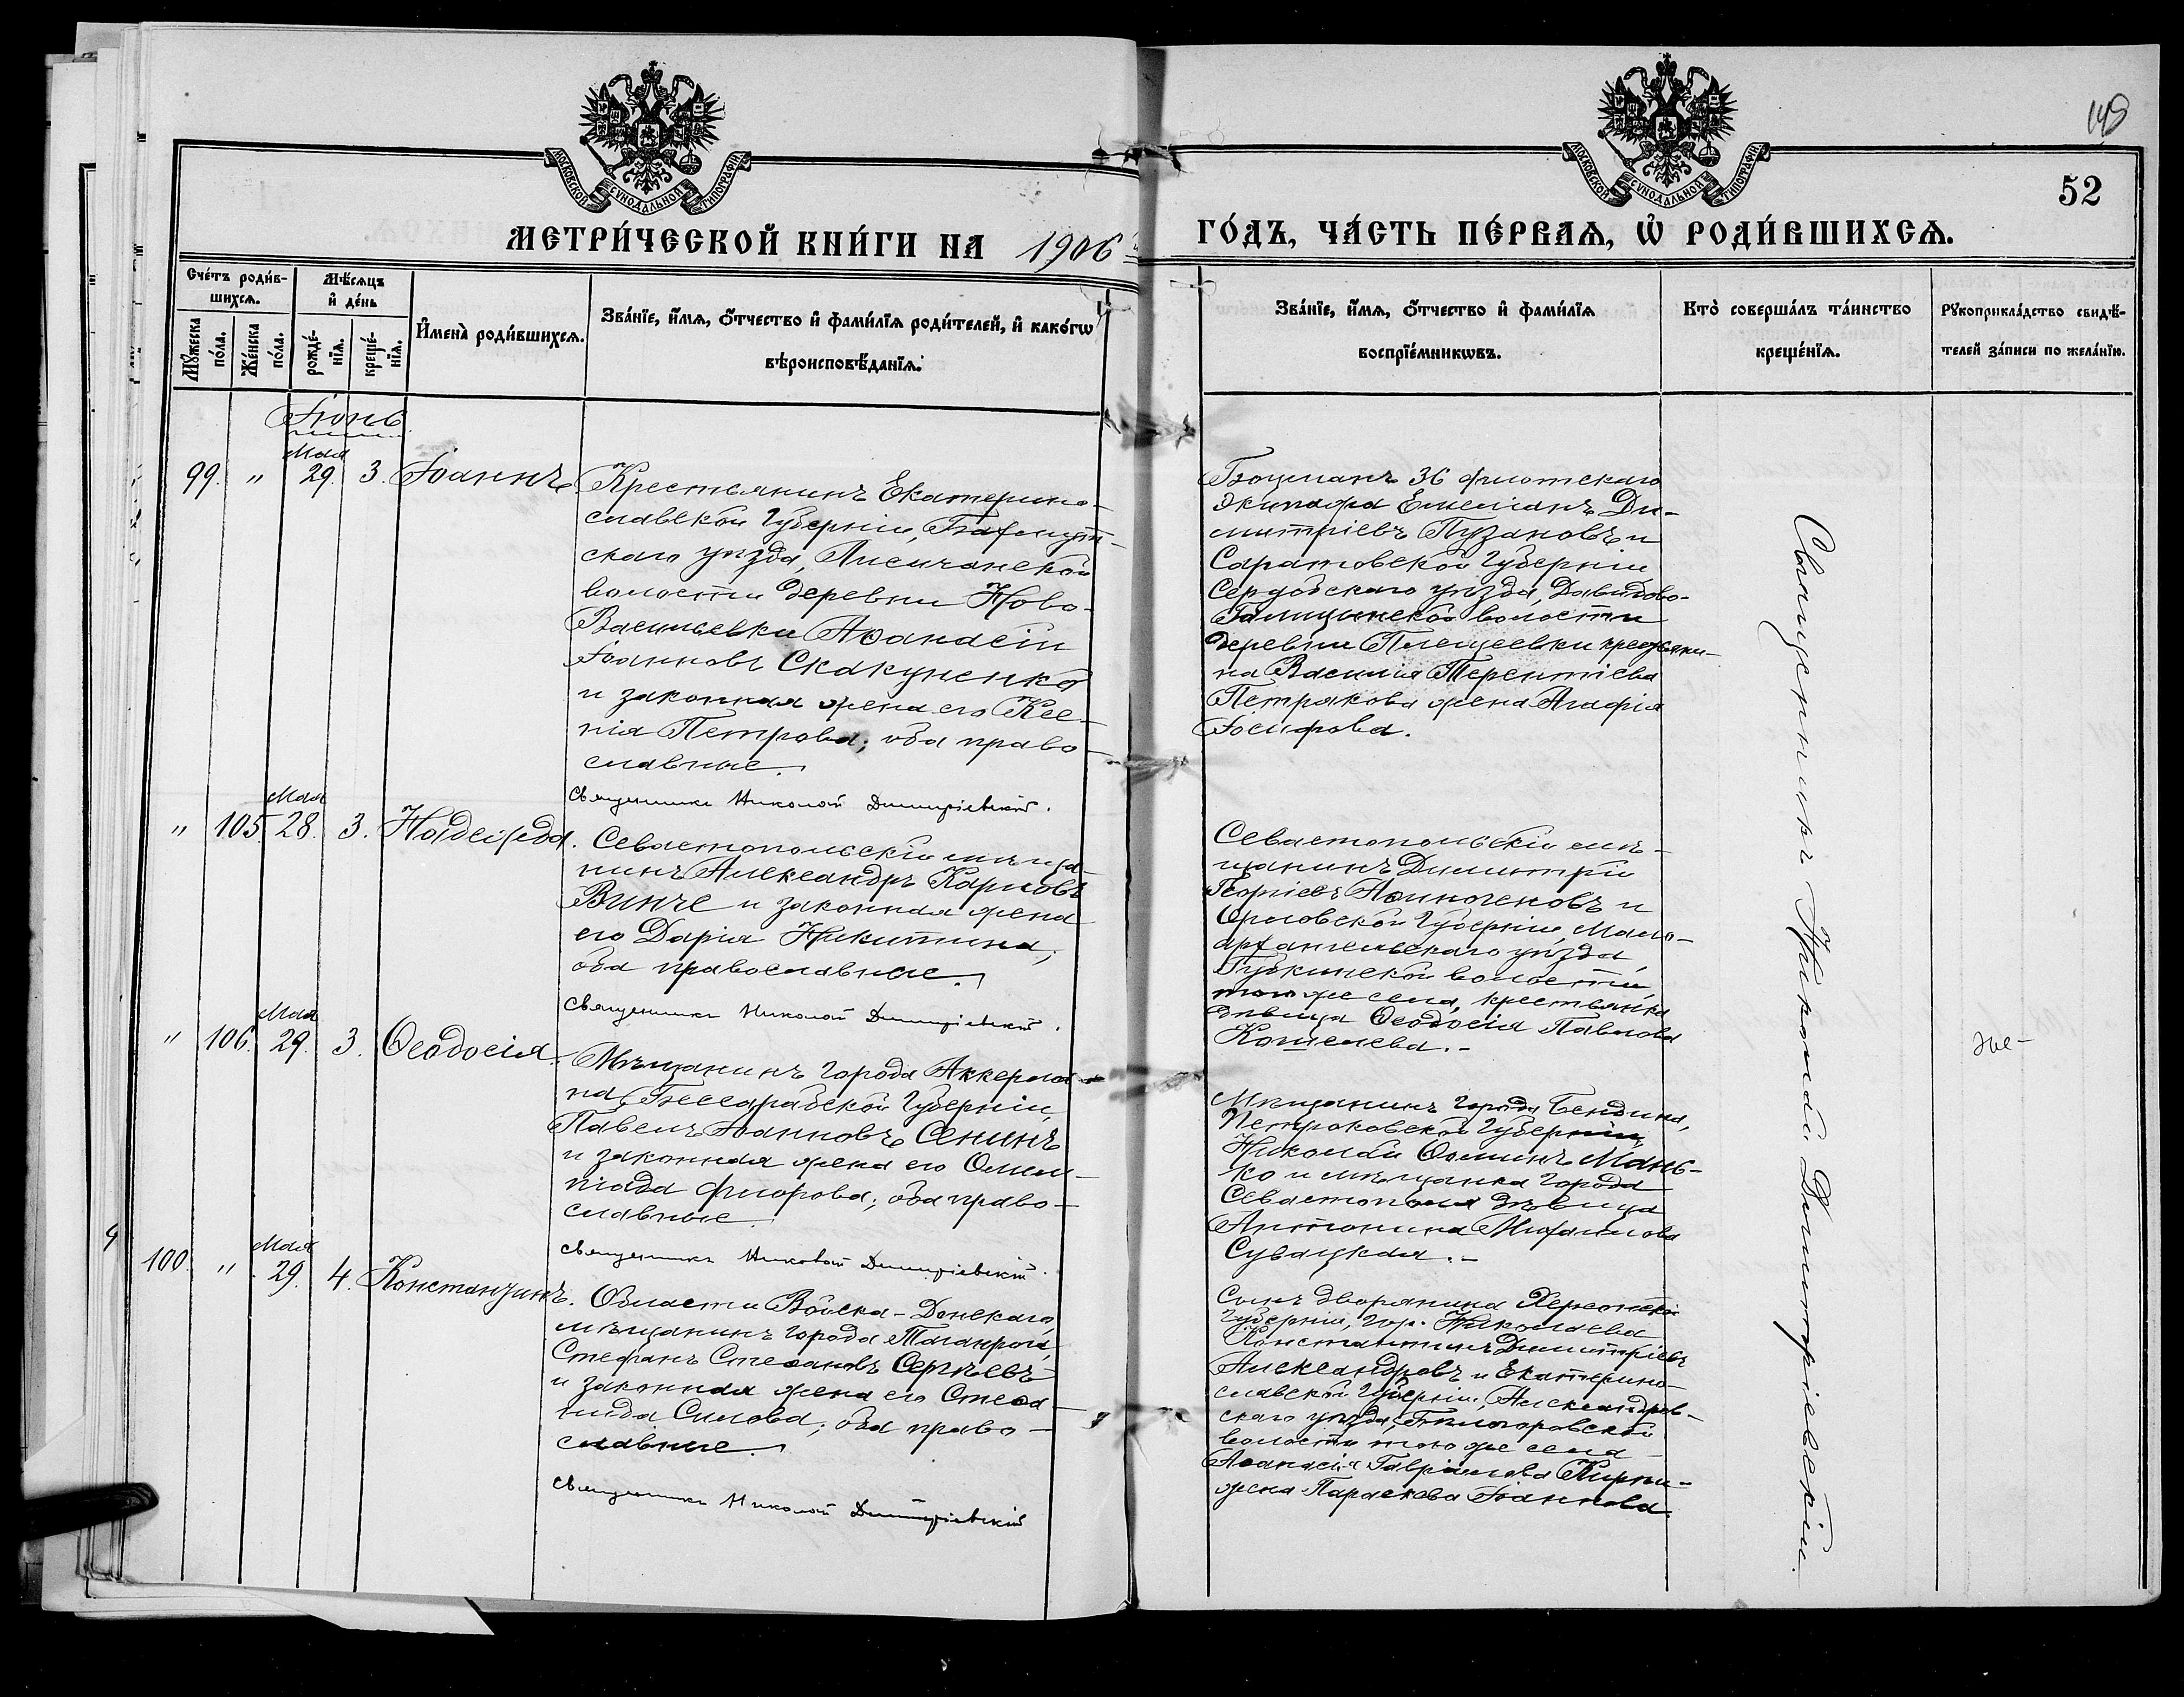 149
52
МОСКОВСКОЙ СѴНОДАЛЬНОЙ ТИПОГРАФІИ
МОСКОВСКОЙ СѴНОДАЛЬНОЙ ТИПОГРАФІИ
МЕТРИ́ЧЕСКОЙ КНИ́ГИ НА 1906
ГО́ДЪ, ЧА́СТЬ ПЕ́РВАѦ, Ѡ҆ РОДИ́ВШИХСѦ.
Сче́тъ роди́в-
шихсѧ.
Мѣ́сѧцъ
и҆ де́нь
Мꙋ́жеска
по́ла.
Же́нска
по́ла.
рожде́-
нїѧ.
креще́-
нїѧ.
И҆мена̀ роди́вшихсѧ.
Зва́нїе, и҆́мѧ, ѻ҆́тчество и҆ фами́лїѧ роди́телей, и҆ како́гѡ
вѣроисповѣ́данїѧ.
Зва́нїе, и҆́мѧ, ѻ҆́тчество и҆ фами́лїѧ
воспрїе́мникѡвъ.
Кто̀ соверша́лъ та́инство
креще́нїѧ.
Рꙋкоприкла́дство свидѣ́-
телей за́писи по жела́нїю.
Іюнь
Мая
99. " 29. 3. Іоаннъ.
Крестьянинъ Екатерино-
славской Губерніи, Бахмут-
скаго уѣзда, Лисичанской
волости деревни Ново-
Васильевки Аѳанасій
Іоанновъ Скакуненко
и законная жена его Ксе-
нія Петрова; оба право-
славные.
Священникъ Николай Димитріевскій.
Боцманъ 36 флотскаго
Экипажа Емеліанъ Ди-
митріевъ Пузановъ и
Саратовской Губерніи
Сердобскаго уѣзда, Давыдово-
Голицинской волости
деревни Плещеевки крестьяни-
на Василія Терентіева
Петрякова жена Агафія
Іосифова.
Мая
" 105. 28. 3. Надежда.
Севастопольскій мѣща-
нинъ Александръ Карповъ
Винче и законная жена
его Дарія Никитина;
оба православные.
Священникъ Николай Димитріевскій.
Севастопольскій мѣ-
щанинъ Димитрій
Георгіевъ Аѳиногеновъ и
Орловской Губерніи, Мало-
архангельскаго уѣзда
Губкинской волости
того же села, крестьянка
дѣвица Ѳеодосія Павлова
Кошелева.-
Мая
" 106. 29. 3. Ѳеодосія.
Мѣщанинъ города Аккерма-
на, Бессарабской Губерніи,
Павелъ Іоанновъ Сенинъ
и законная жена его Олим-
піада Флорова; оба право-
славные.
Священникъ Николай Димитріевскій.
Мѣщанинъ города Бендина,
Петроковской Губерніи,
Николай Ѳоминъ Мань-
ко и мѣщанка города
Севастополя дѣвица
Антонина Михаилова
Сувацкая.-
Мая
100. " 29. 4. Константинъ.
Области Войска-Донскаго,
мѣщанинъ города Таганрога,
Стефанъ Стефановъ Сергѣевъ
и законная жена его Стефа-
нида Силова; оба право-
славные.
Священникъ Николай Димитріевскій
Сынъ дворянина Херсонской
Губерніи, гор. Николаева
Константинъ Димитріевъ
Александровъ и Екатерино-
славской Губерніи, Александров-
скаго уѣзда, Бѣлогоровской
волости того же села
Аѳанасія Гавріилова
жена Параскева Іоаннова.
Священникъ Николай Димитріевскій.